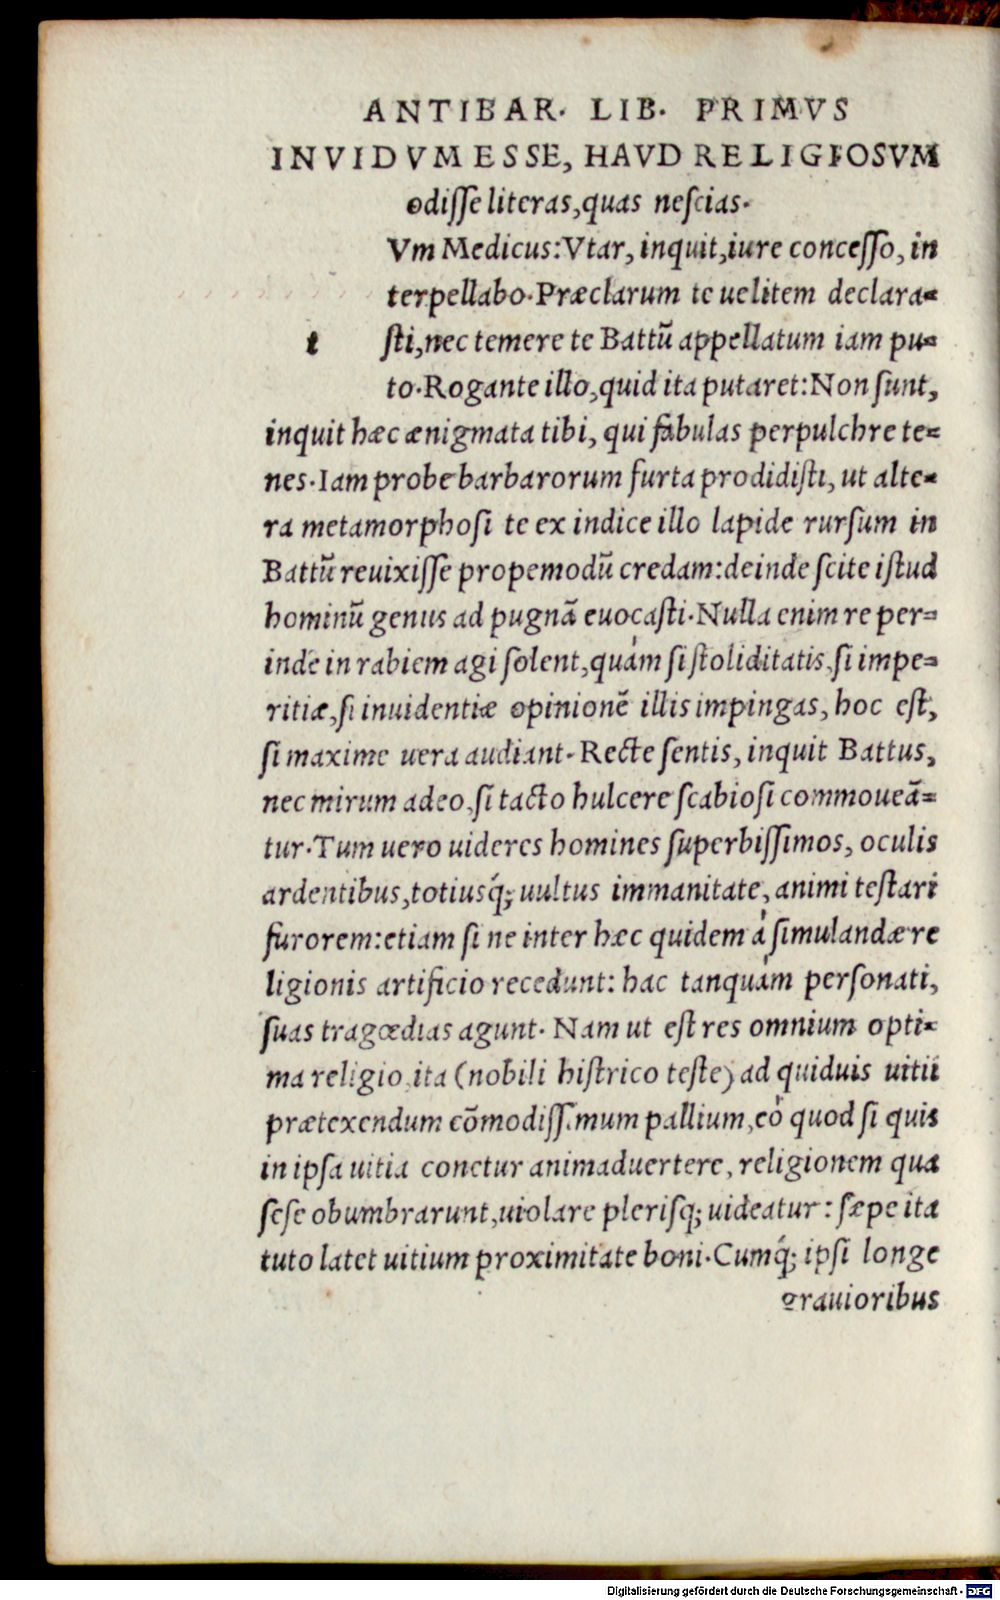 ANTIBAR. LIB. PRIMVS
INVIDVM ESSE, HAVD RELIGIOSVM
odisse literas, quas nescias.
Vm Medicus: Vtar, inquit, iure concesso, in
terpellabo. Præclarum te uelitem declara-
t sti, nec temere te Battũ appellatum iam pu-
to. Rogante illo, quid ita putaret: Non sunt,
inquit hæc ænigmata tibi, qui fabulas perpulchre te-
nes. Iam probe barbarorum furta prodidisti, ut alte-
ra metamorphosi te ex indice illo lapide rursum in
Battũ reuixisse propemodũ credam: deinde scite istud
hominũ genus ad pugnã euocasti. Nulla enim re per-
inde in rabiem agi solent, quàm si stoliditatis, si impe-
ritiæ, si inuidentiæ opinionẽ illis impingas, hoc est,
si maxime uera audiant. Recte sentis, inquit Battus,
nec mirum adeo, si tacto hulcere scabiosi commoueã-
tur. Tum uero uideres homines superbissimos, oculis
ardentibus, totiusq́; uultus immanitate, animi testari
furorem: etiam si ne inter hæc quidem à simulandæ re
ligionis artificio recedunt: hac tanquàm personati,
suas tragœdias agunt. Nam ut est res omnium opti-
ma religio, ita (nobili histrico teste) ad quiduis uitii
prætexendum cõmodiss.mum pallium, eò quod si quis
in ipsa uitia conetur animaduertere, religionem qua
sese obumbrarunt, uiolare plerisq; uideatur: sæpe ita
tuto latet uitium proximitate boni. Cumq́; ipsi longe
grauioribus
Digitalisierung gefördert durch die Deutsche Forschungsgemeinschaft - DFG